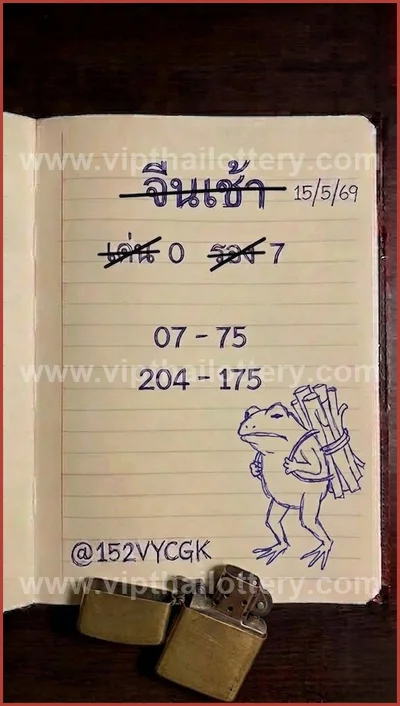 www.vipthailottery.com
จีนเช้า 15/5/69
เด่น 0 รอง 7
07 - 75
www.vipthailottery.com
204 - 175
@152VYCGK
www.vipthailottery.com